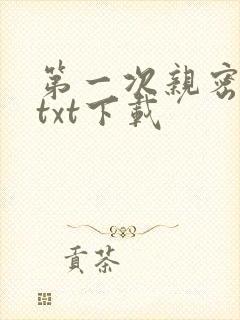 第一次親密
txt下載
貢茶